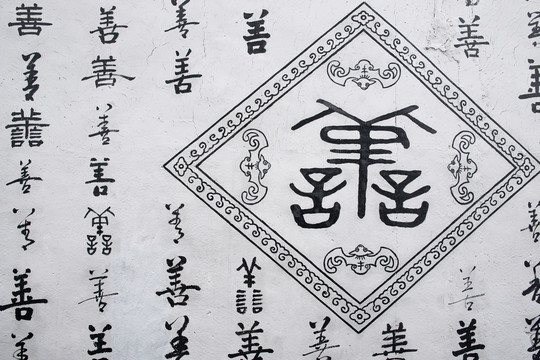 善善善善善善善
善善善善善善善
善善善善善
善善善
善
善
善
善善善